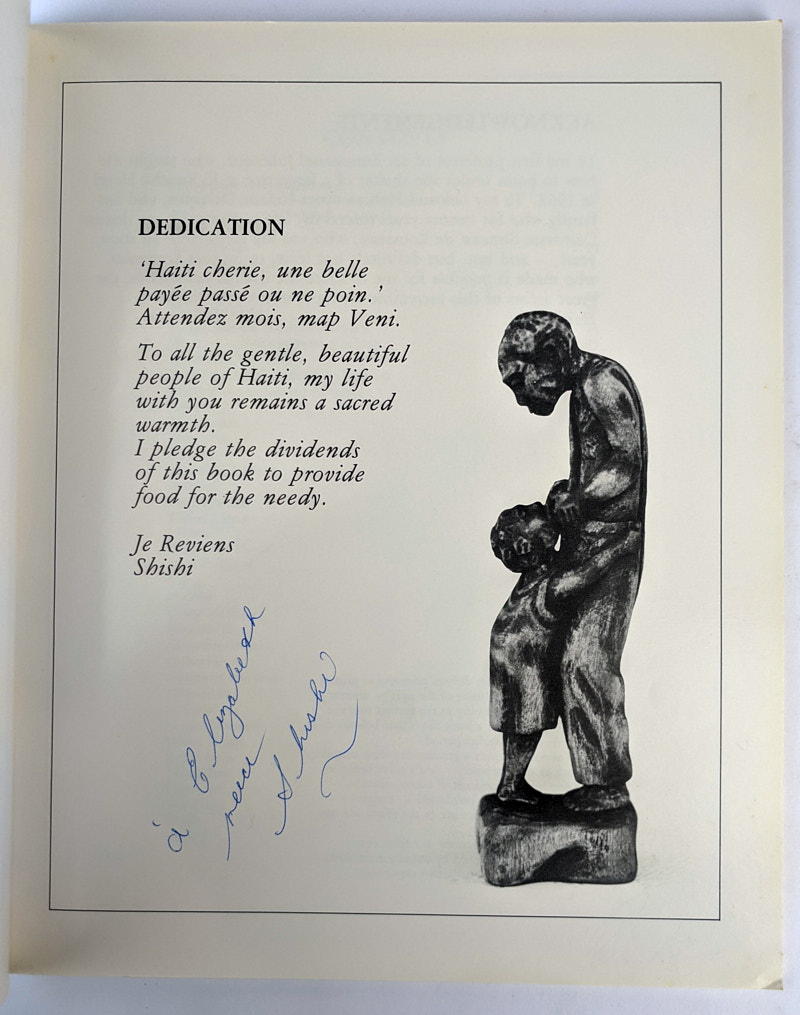 DEDICATION
‘Haiti cherie, une belle
payée passé ou ne poin.’
Attendez mois, map Veni.
To all the gentle, beautiful
people of Haiti, my life
with you remains a sacred
warmth.
I pledge the dividends
of this book to provide
food for the needy.
Je Reviens
Shishi
à Elizabeth
merci
Shishi